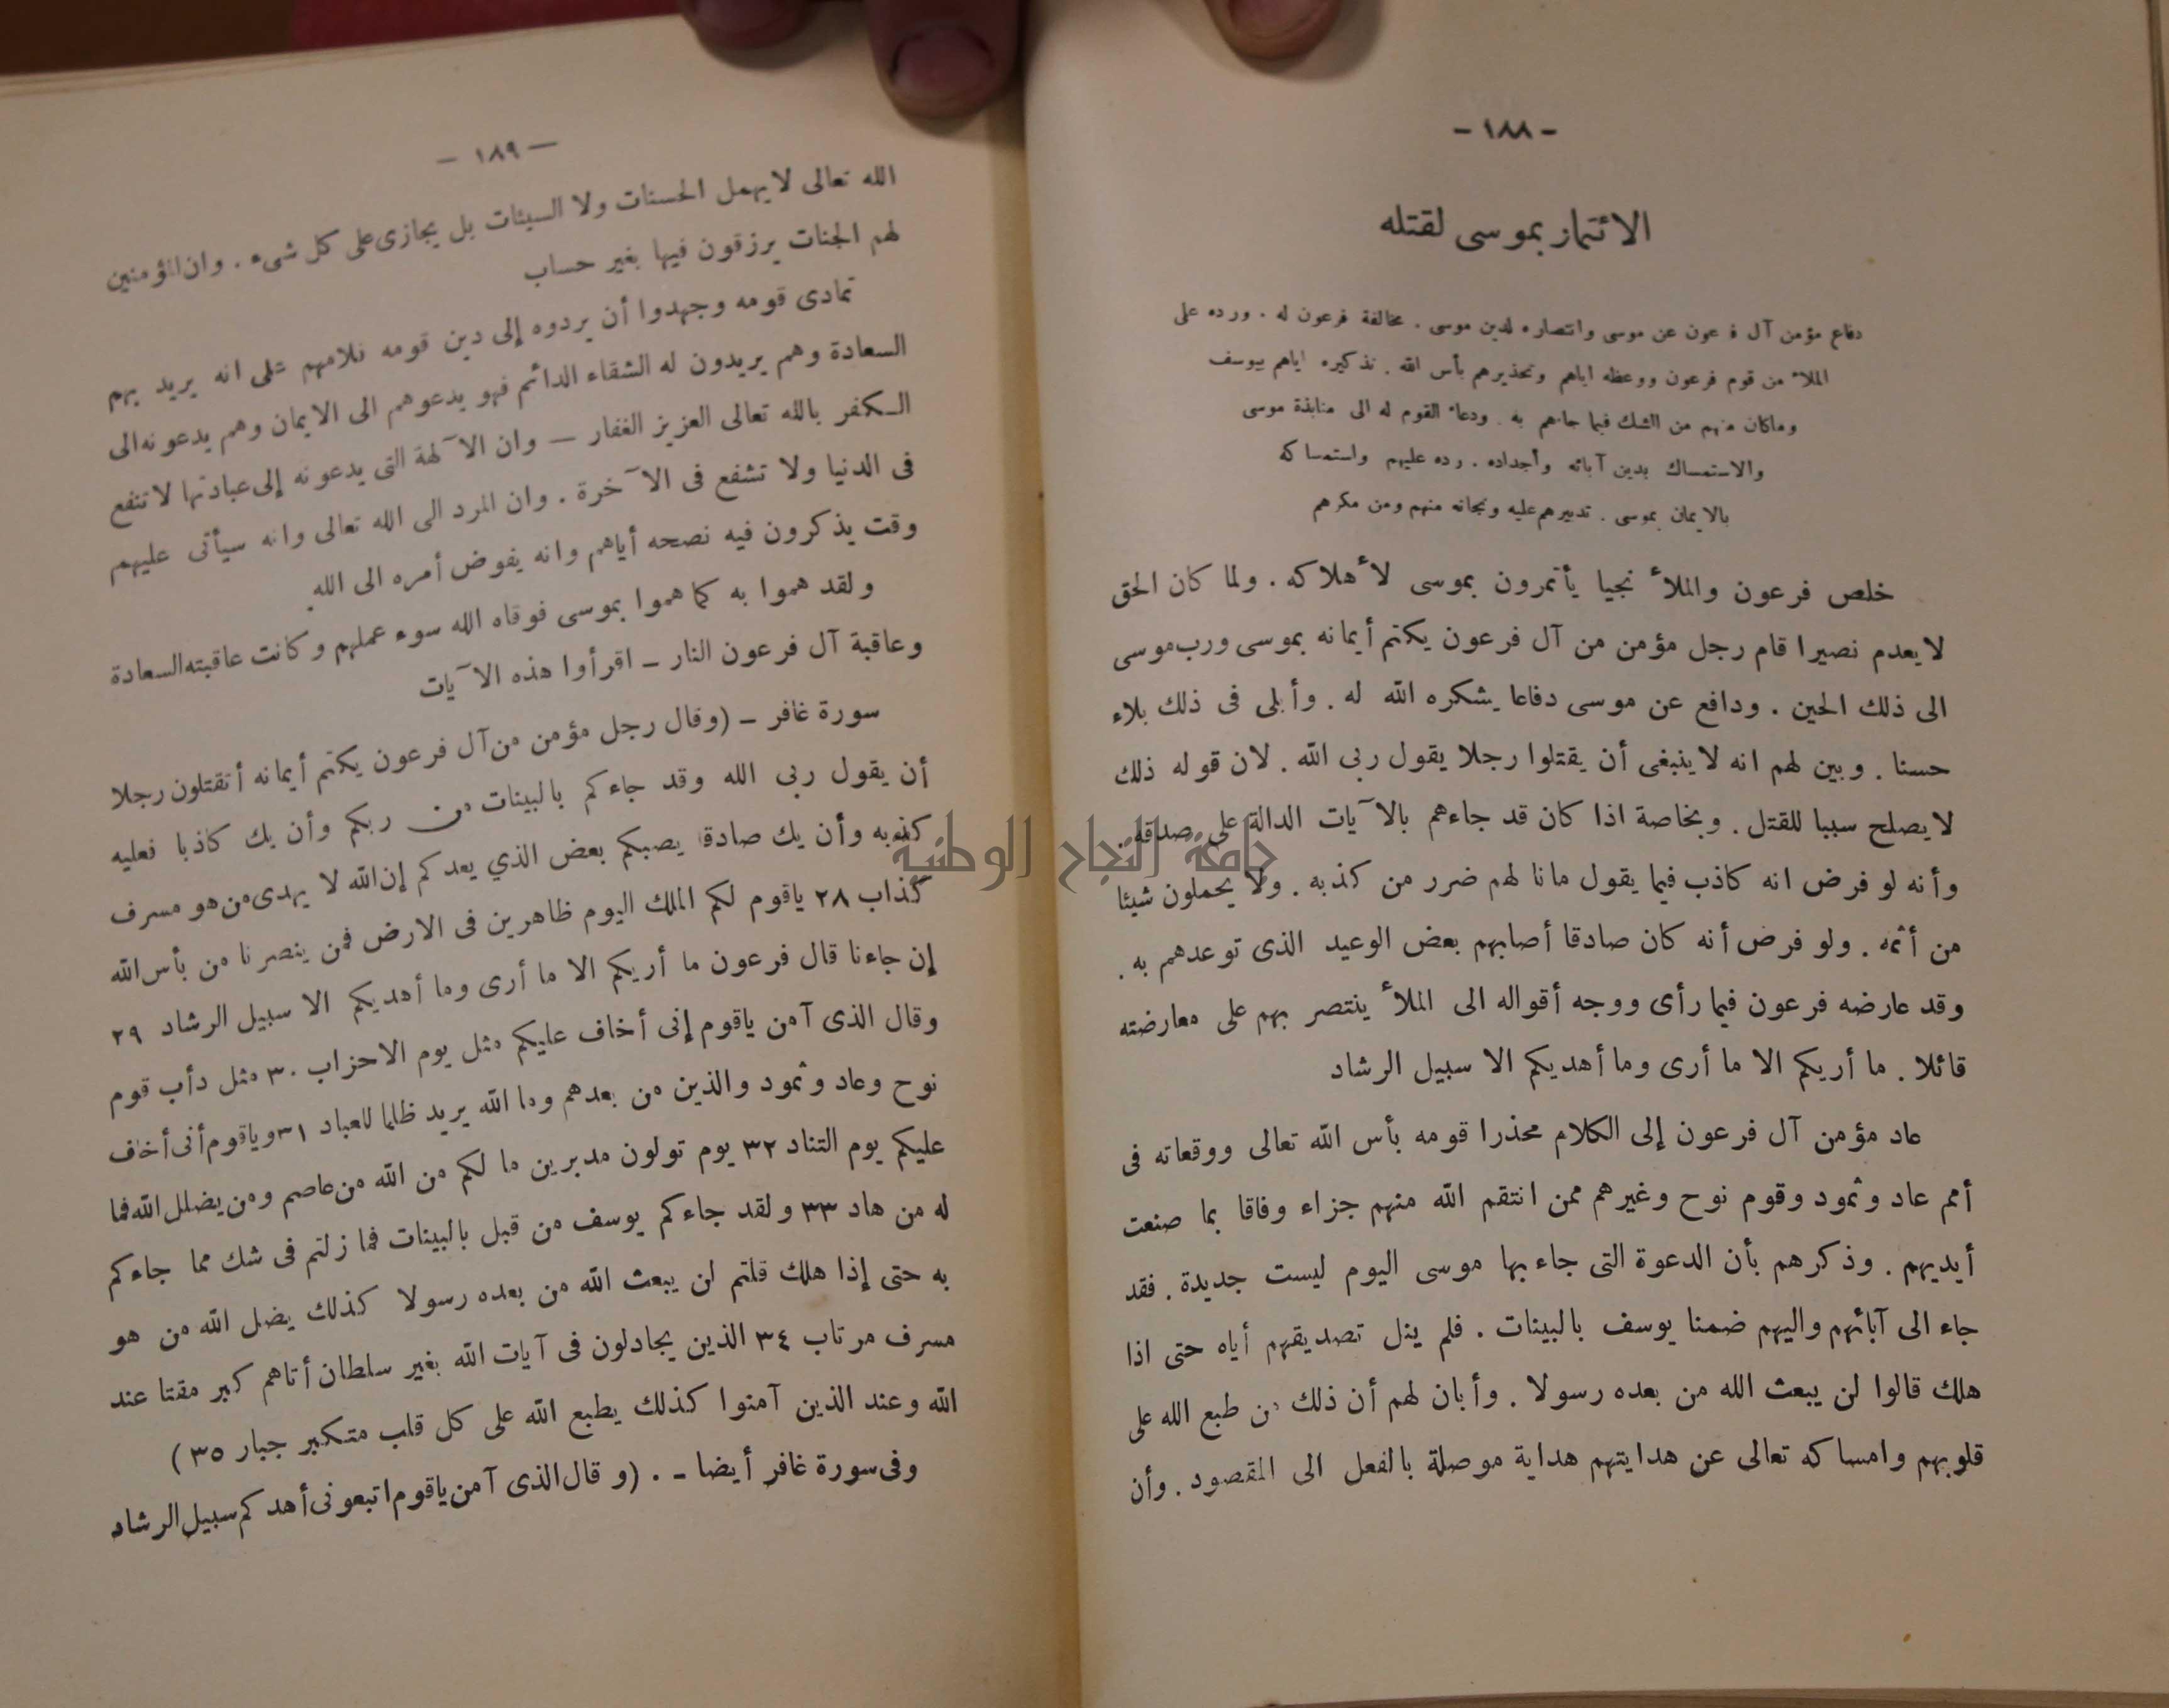 - ١٨٨ -
الائتمار بموسى لقتله
دفاع مؤمن آل فرعون عن موسى وانتصاره لدين موسى . مخالفة فرعون له . ورده على
الملأ من قوم فرعون ووعظه اياهم وتحذيرهم بأس الله . تذكيره اياهم بيوسف
وما كان منهم من الشك فيما جاءهم به . ودعاء القوم له الى منابذة موسى
والاستمساك بدين آبائه وأجداده . رده عليهم واستمساكه
بالايمان بموسى . تدبيرهم عليه ونجاته منهم ومن مكرهم
خلص فرعون والملأ نجيا يأتمرون بموسى لأهلاكه . ولما كان الحق
لا يعدم نصيرا قام رجل مؤمن من آل فرعون يكتم أيمانه بموسى ورب موسى
الى ذلك الحين . ودافع عن موسى دفاعا يشكره الله له . وأبلى فى ذلك بلاء
حسنا . وبين لهم انه لا ينبغى أن يقتلوا رجلا يقول ربى الله . لان قوله ذلك
لا يصلح سببا للقتل . وبخاصة اذا كان قد جاءهم بالآيات الدالة على صدقه .
وأنه لو فرض انه كاذب فيما يقول مانا لهم ضرر من كذبه . ولا يحملون شيئا
من أثمه . ولو فرض أنه كان صادقا أصابهم بعض الوعيد الذى توعدهم به .
وقد عارضه فرعون فيما رأى ووجه أقواله الى الملأ ينتصر بهم على معارضته
قائلا . ما أريكم الا ما أرى وما أهديكم الا سبيل الرشاد
عاد مؤمن آل فرعون إلى الكلام محذرا قومه بأس الله تعالى ووقعاته فى
أمم عاد وثمود وقوم نوح وغيرهم ممن انتقم الله منهم جزاء وفاقا بما صنعت
أيديهم . وذكرهم بأن الدعوة التى جاء بها موسى اليوم ليست جديدة . فقد
جاء الى آبائهم واليهم ضمنا يوسف بالبينات . فلم ينل تصديقهم أياه حتى اذا
هلك قالوا لن يبعث الله من بعده رسولا . وأبان لهم أن ذلك من طبع الله على
قلوبهم وامساكه تعالى عن هدايتهم هداية موصلة بالفعل الى المقصود . وأن
— ١٨٩ —
الله تعالى لا يهمل الحسنات ولا السيئات بل يجازى على كل شىء . وان المؤمنين
لهم الجنات يرزقون فيها بغير حساب
تمادى قومه وجهدوا أن يردوه إلى دين قومه فلامهم على انه يريد بهم
السعادة وهم يريدون له الشقاء الدائم فهو يدعوهم الى الايمان وهم يدعونه الى
الكفر بالله تعالى العزيز الغفار — وان الآلهة التى يدعونه إلى عبادتها لا تنفع
فى الدنيا ولا تشفع فى الآخرة . وان المرد الى الله تعالى وانه سيأتى عليهم
وقت يذكرون فيه نصحه أياهم وانه يفوض أمره الى الله
ولقد هموا به كما هموا بموسى فوقاه الله سوء عملهم وكانت عاقبته السعادة
وعاقبة آل فرعون النار — اقرأوا هذه الآيات
سورة غافر — (وقال رجل مؤمن من آل فرعون يكتم أيمانه أتقتلون رجلا
أن يقول ربى الله وقد جاءكم بالبينات من ربكم وأن يك كاذبا فعليه
كذبه وأن يك صادقا يصبكم بعض الذي يعدكم إن الله لا يهدى من هو مسرف
كذاب ٢٨ ياقوم لكم الملك اليوم ظاهرين فى الارض فمن ينصرنا من بأس الله
إن جاءنا قال فرعون ما أريكم الا ما أرى وما أهديكم الا سبيل الرشاد ٢٩
وقال الذى آمن ياقوم إنى أخاف عليكم مثل يوم الاحزاب ٣٠ مثل دأب قوم
نوح وعاد وثمود والذين من بعدهم وما الله يريد ظلما للعباد ٣١ وياقوم أنى أخاف
عليكم يوم التناد ٣٢ يوم تولون مدبرين ما لكم من الله من عاصم ومن يضلل الله فما
له من هاد ٣٣ ولقد جاءكم يوسف من قبل بالبينات فما زلتم فى شك مما جاءكم
به حتى إذا هلك قلتم لن يبعث الله من بعده رسولا كذلك يضل الله من هو
مسرف مرتاب ٣٤ الذين يجادلون فى آيات الله بغير سلطان أتاهم كبر مقتا عند
الله وعند الذين آمنوا كذلك يطبع الله على كل قلب متكبر جبار ٣٥ )
وفى سورة غافر أيضا — . (وقال الذى آمن ياقوم اتبعونى أهدكم سبيل الرشاد
جامعة النجاح الوطنية